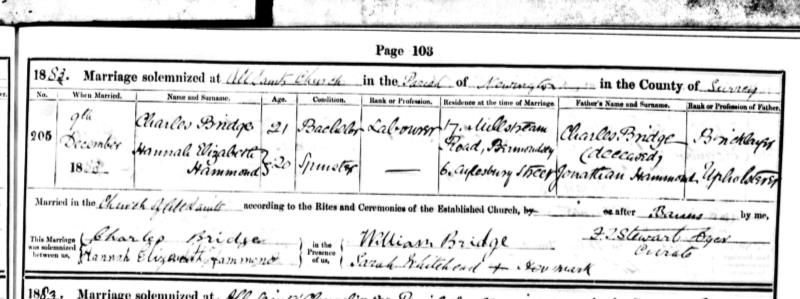 Page 103
1883. Marriage solemnized at All Saints Church in the Parish of Newington in the County of Surrey
No. When Married. Name and Surname. Age. Condition. Rank or Profession. Residence at the time of Marriage. Father's Name and Surname. Rank or Profession of Father.
205 9th December 1883 Charles Bridge 21 Bachelor Labourer 17 Millstream Road, Bermondsey Charles Bridge (deceased) Bricklayer
Hannah Elizabeth Hammond 20 Spinster — 6 Aylesbury Street Jonathan Hammond Upholsterer
Married in the Church of All Saints according to the Rites and Ceremonies of the Established Church, by or after Banns by me,
This Marriage was solemnized between us, Charles Bridge in the Presence of us, William Bridge F. J. Stewart
Hannah Elizabeth Hammond Sarah Whitehead + her mark Curate
1883. Marriage solemnized at All